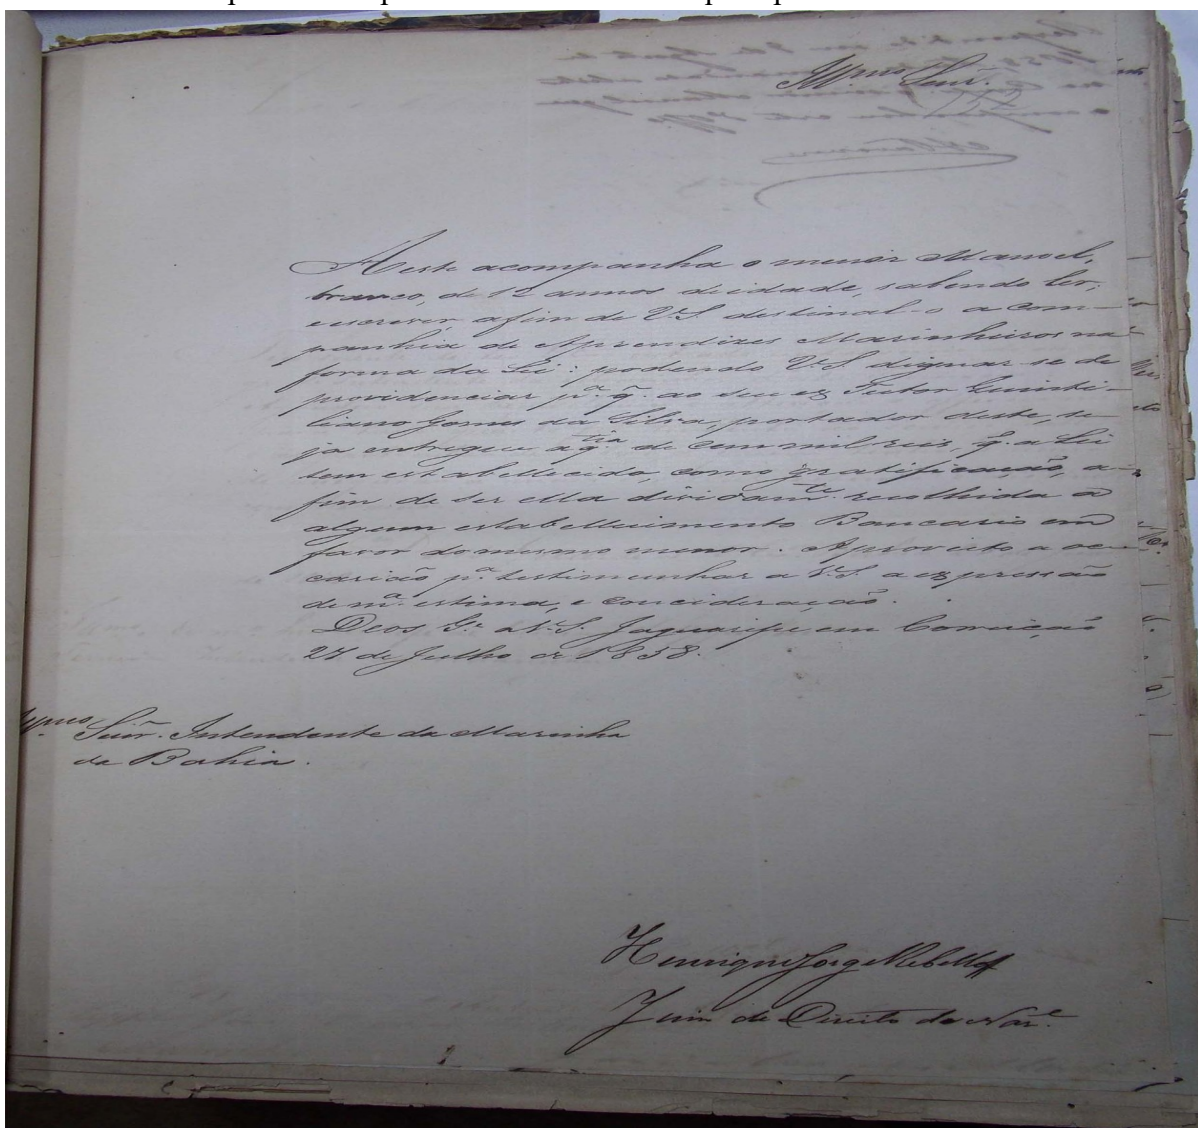 Illmo Senr.
A este acompanha o menor Manoel,
branco, de 12 annos de idade, sabendo ler,
escrever, afim de V.S. destinal-o a com-
panhia de Aprendizes Marinheiros na
forma da Lei: podendo V.S. dignar-se de
providenciar pa. q. ao seu ex Tutor Quinti-
liano Gomes da Silva, portador deste, se-
ja entregue a qtia de cem mil reis, q. a Lei
tem estabellecido, como gratificação, a-
fim de ser ella dividamte. recolhida a
algum estabellecimento Bancario em
favor do mesmo menor. Aproveito a oc-
casião pa. testimunhar a V.S. a expressão
de ma. estima, e concideração.
Deos Ge. a V.S. Jaguaripe em Correição
27 de Julho de 1858.
Illmo Senr. Intendente da Marinha
da Bahia.
Henrique Jorge Rebello
Juiz de Direito de Nare.